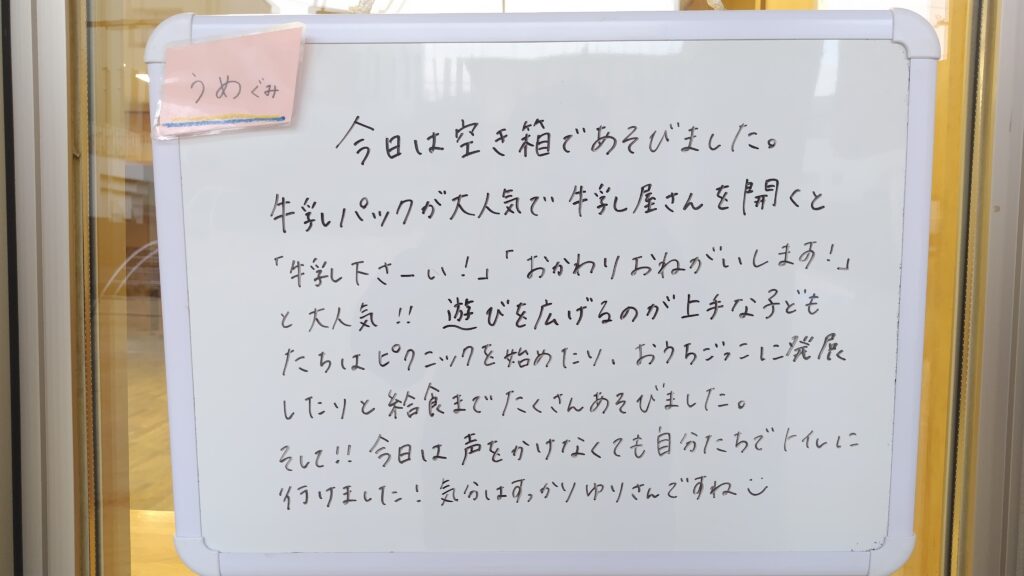 うめぐみ
今日は空き箱であそびました。
牛乳パックが大人気で牛乳屋さんを開くと
「牛乳下さーい！」「おかわりおねがいします！」
と大人気！！ 遊びを広げるのが上手な子ども
たちはピクニックを始めたり、おうちごっこに発展
したりと給食までたくさんあそびました。
そして！！今日は声をかけなくても自分たちでトイレに
行けました！気分はすっかりゆりさんですね